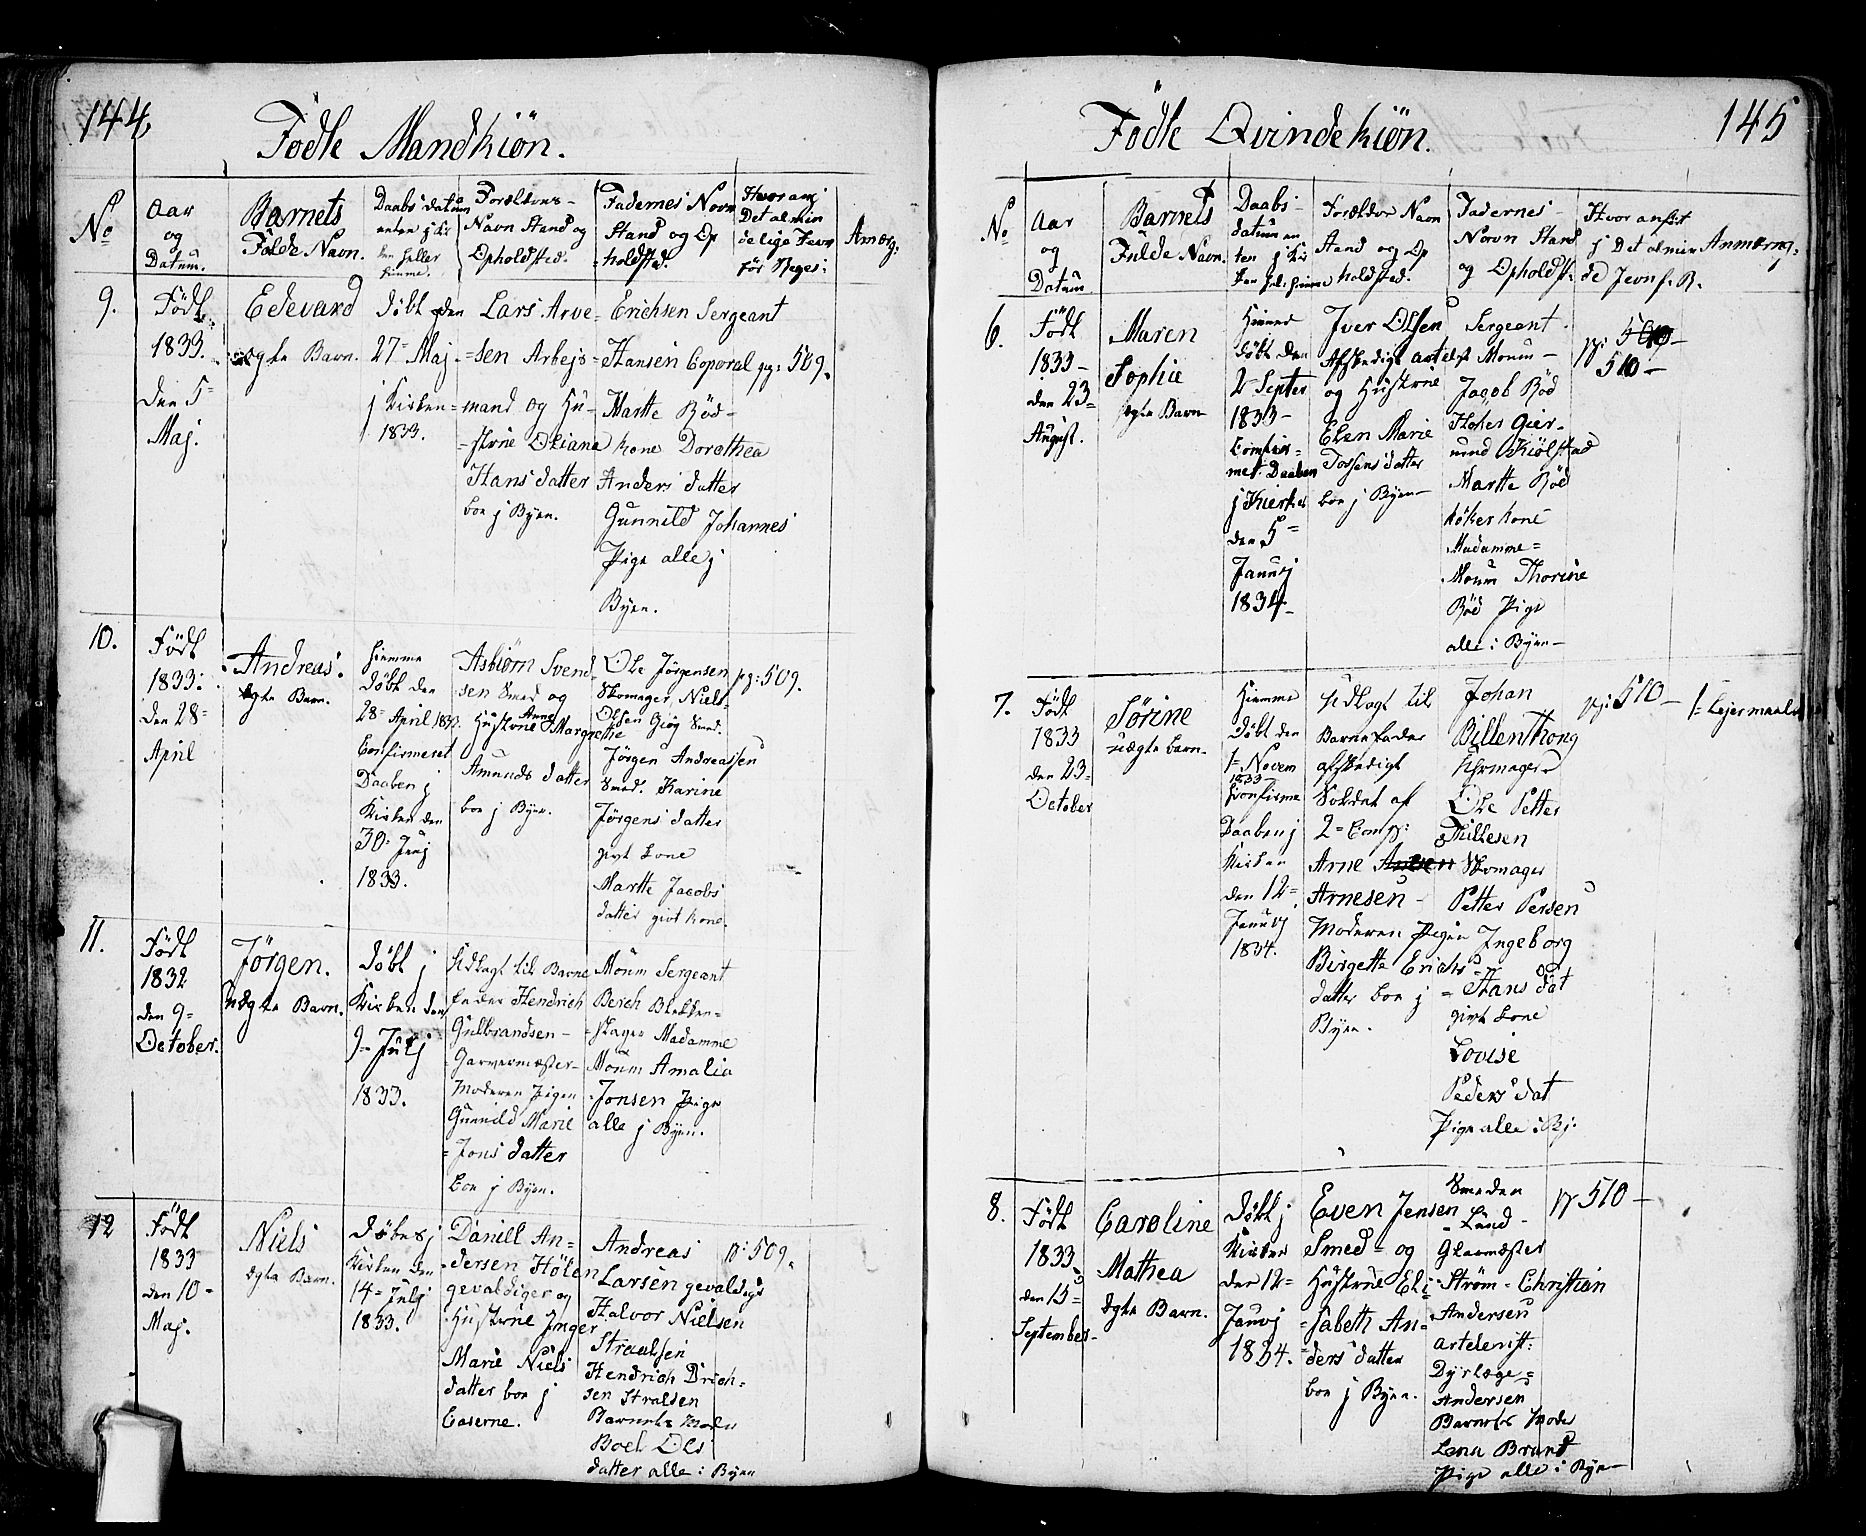 144.
Födte Mandkiön.
No
Aar
og
Datum.
Barnets
Fulde Navn.
Daabs datum
enten j Kir
ken heller
hiemme.
Forældrenes
Navn Stand og
Opholdsted.
Faderness Navn
Stand og Op
=holdsted.
Hvor anf
Det almin
delige Jevn
för Reges:
Anmærg:
9.
Födt
1833.
den 5=
Maj.
Edevard
ægte Barn.
döbt den
27= Maj
j Kirken=
1833.
Lars Arve=
=sen Arbejs=
mand og Hu-
=strue Oliana
Hans datter
boe j Byen.
Erichsen Sergeant
Hansen Coporal
Marthe Röd-
kone Dorothea
Anders datter
Gunnild Johannes
Pige alle j
Byen.
pg: 509.
10.
Födt
1833.
den 28=
April
Andreas.
ægte Barn.
hiemme
döbt den
28= April 1833.
Confirmeret
Daaben j
Kirken den
30= Junj
1833.
Asbiörn Svend
sen Smed og
Hustrue Anne Margrethe
Amunds datter
boe j Byen.
Ole Jörgensen
Skomager, Niels
Olsen Giög Smed.
Jörgen Andreassen
Smed. Karine
Jörgens datter
givt kone
Marthe Jacobs
datter givt kone.
pg: 509.
11.
Födt
1832
den 9=
October.
Jörgen.
uægte Barn.
Döbt j
Kirken den
9= Julj
1833.
Udlagt til Barne
fader Hendrich
Gulbrandsen-
Garvermæster-
Moderen Pigen
Gunnild Marie
=Jons datter
boe j Byen.
Moum Sergeant
Berch Blekken=
=slager Madamme
Moum Amalia
Jonsen Pige
alle j Byen.
12
Födt
1833
den 10=
Maj.
Niels
ægte Barn.
Döbt j
Kirken den
14= Julj
1833.
Daniell An=
=dersen Hölen
gevaldiger og
Hustrue Inger
Marie Niels
datter boe j
Caserne.
Andreas
Larsen gevaldigr
Halvor Nielsen
Straalsen
Hendrich Drich=
sen Stralsen
Barnets Moder
Boel Ols
datter alle i Byen
p: 509.
145
Födte Qvindekiön.
No
Aar
og
Datum
Barnets
Fulde Navn.
Daabs-
datum en
ten j Kir
ken hel: hiemme
Forældre Navn
Stand og Op
holdsted.
Faderness-
Navn Stand
og Opholdst:
Hvor anföt
j Det almin
de Jevnf. R.
Anmærng.
6.
Födt
1833-
den 23=
August.
Maren
Sophie
ægte Barn
Hiemme
döbt den
2= Septer
1833-
Comfir=
met. Daaben
j Kierke
den 5=
Januarj
1834-
Iver Olsen
Afskedigt artelst
og Hustrue
Elen Marie
Torsens datter
boe j Byen-
Sergeant
Moum-
Jacob Röd
Höker Gier-
mund Kiölstad
Marthe Röd
höker kone
Madamme=
Moum Thorine
Röd Pige
alle i Byen-
pg: 509-
510-
7.
Födt
1833
den 23=
October
Sörine
uægte barn-
Hiemme
döbt den
1= Novem
1833
Confirme
Daaben j
Kirken
den 12=
Januarj
1834.
Udlagt til
Barnefader
afskedigt
Soldat af
2= Comp:
Arne
Arnesen-
Moderen Pigen
Birgette Erichs=
datter boe j
Byen.
Johan
Billenthong
Uhrmager
Ole Petter
Tillesen
Skomager
Petter Persen
Ingeborg
=Hans dat
givt kone
Lovise
Peders dat
Pige alle i Bj.
pg: 510-
1= Lejermaal
8.
Födt
1833
den 15=
September-
Caroline
Mathea
ægte Barn.
Döbt j
Kirken
den 12=
Januarj
1834.
Even Jensen
Smed- og
Hustrue Eli=
=sabeth An=
ders datter
boe j Byen.
Smeden
-Lund-
Glarmæster
Ström- Christian
Andersen
artelerist:
Dyrlæge=
Andersen
Barnets Moder
Lena Brand
Pige alle i Bye-
pg 510-